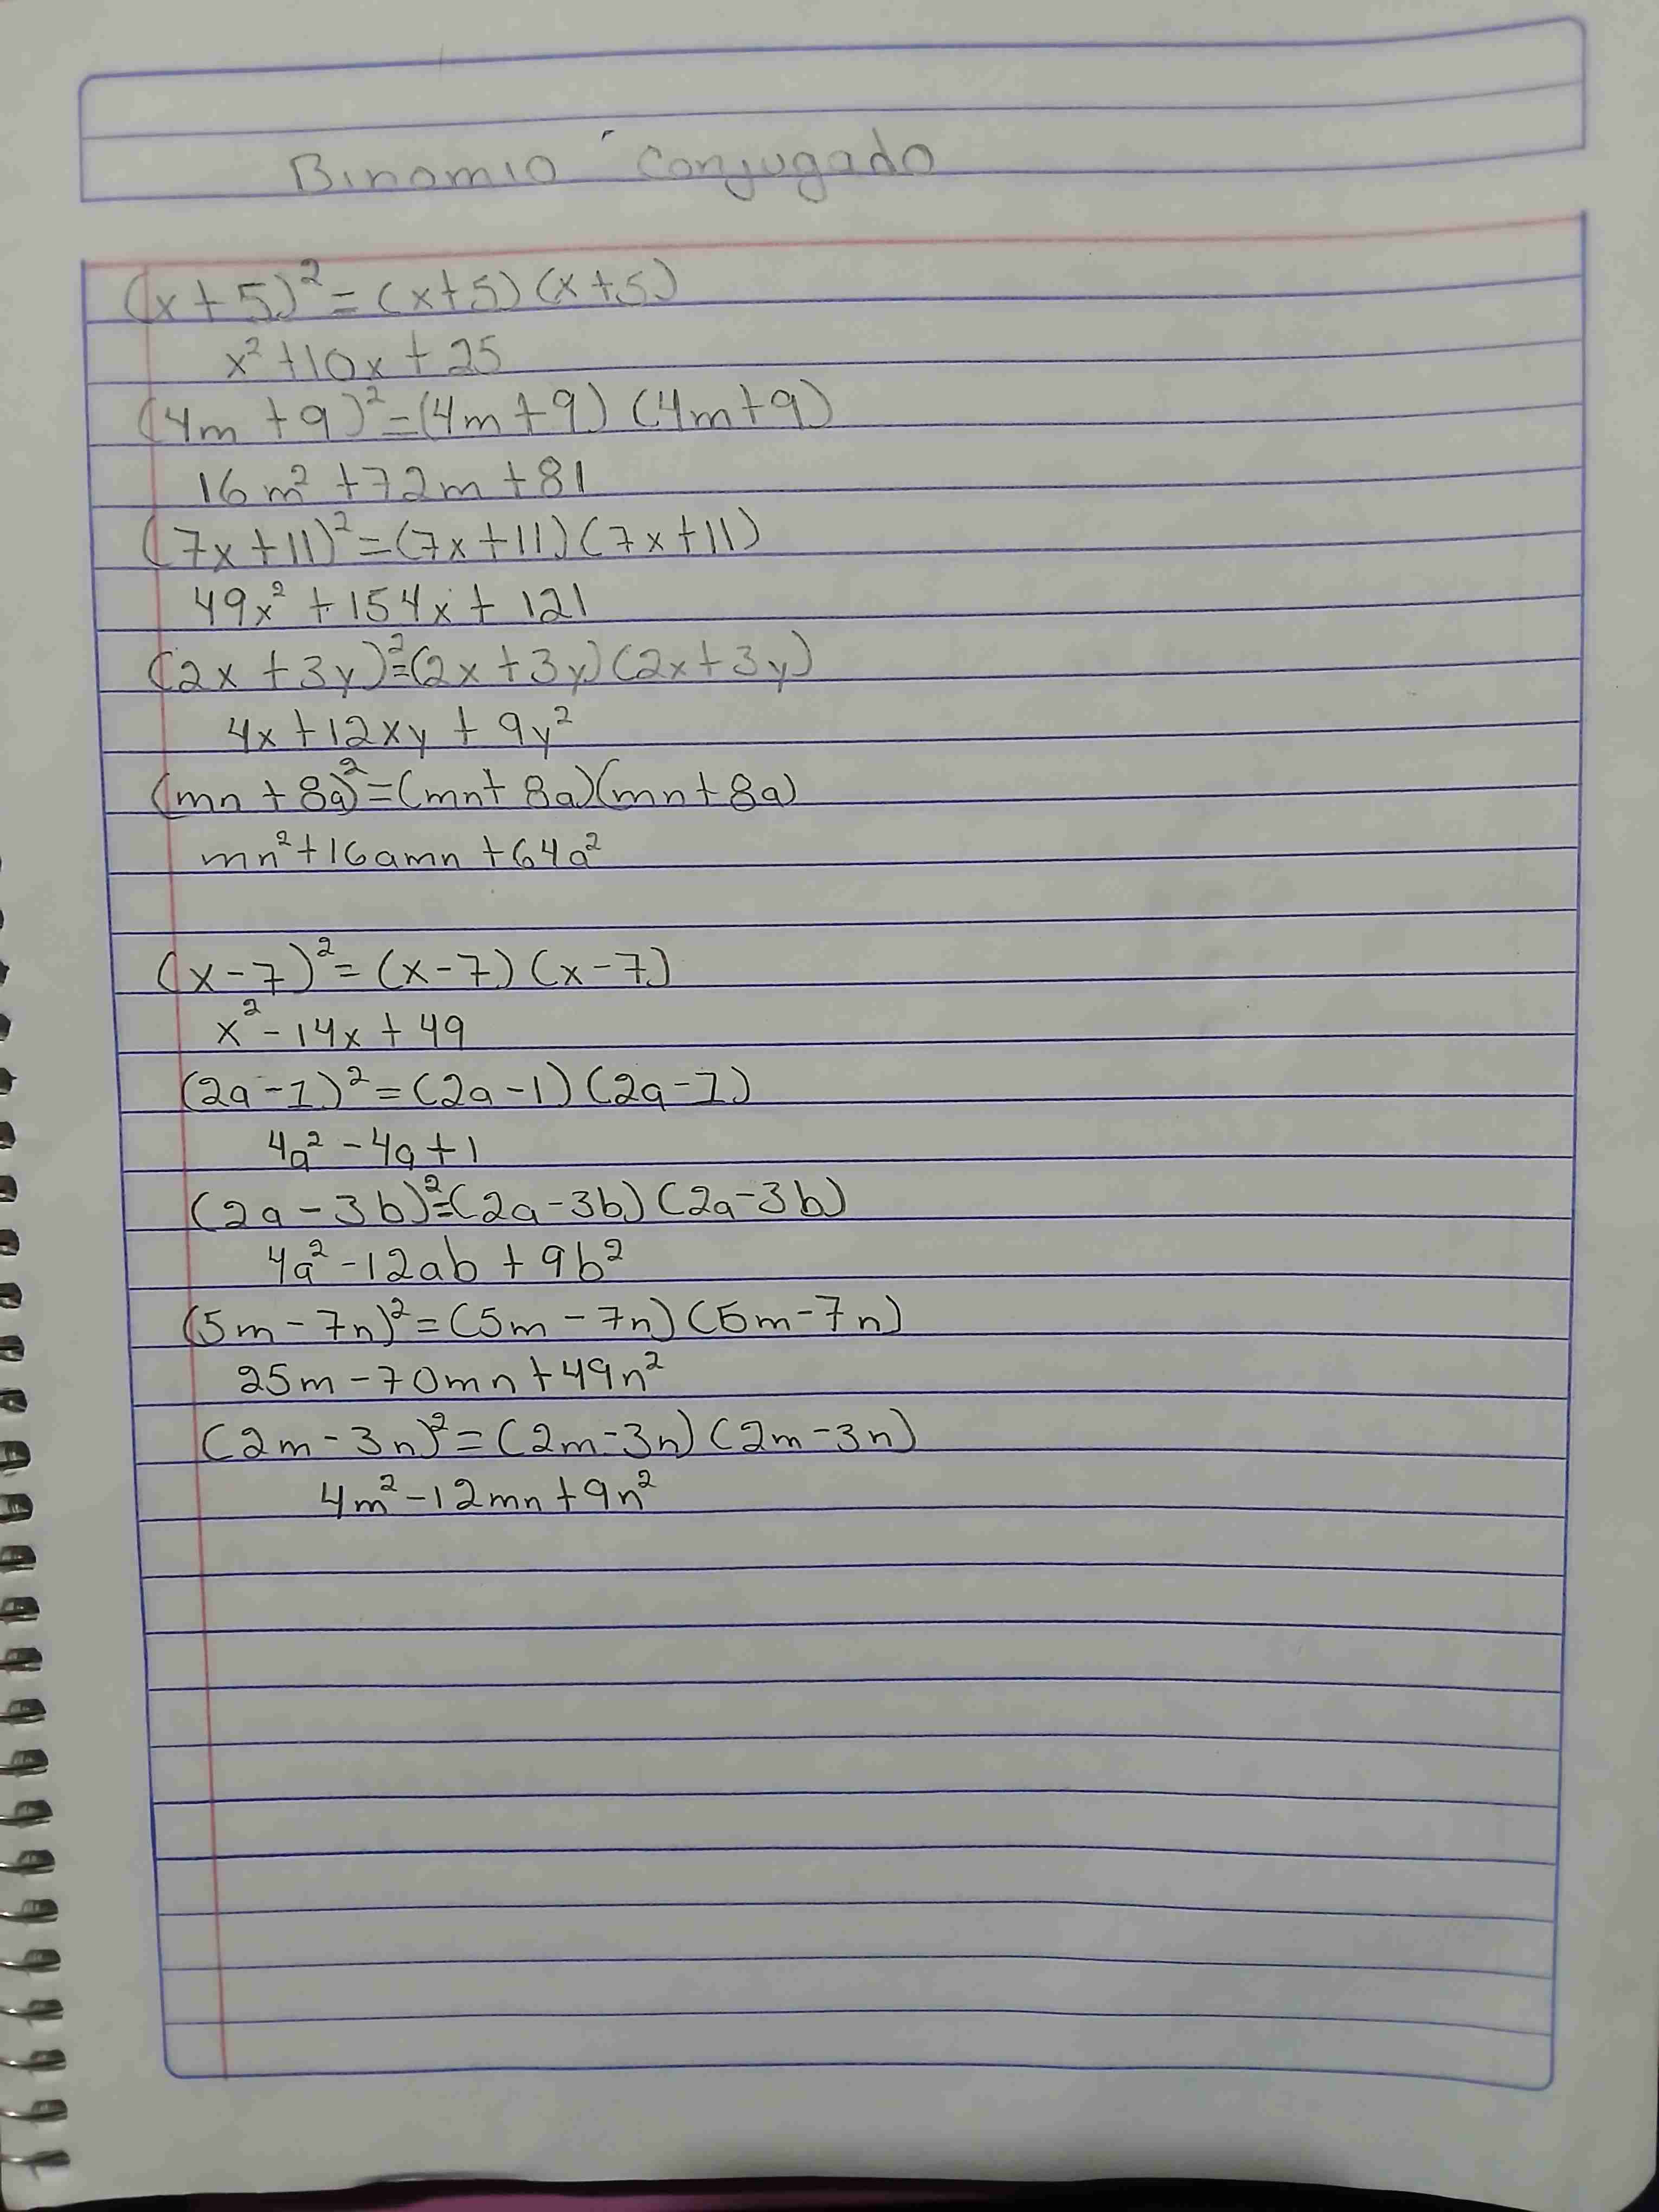 Binomio conjugado
(x+5)²=(x+5)(x+5)
x²+10x+25
(4m+9)²=(4m+9)(4m+9)
16m²+72m+81
(7x+11)²=(7x+11)(7x+11)
49x²+154x+121
(2x+3y)²=(2x+3y)(2x+3y)
4x+12xy+9y²
(mn+8a)²=(mn+8a)(mn+8a)
mn²+16amn+64a²
(x-7)²=(x-7)(x-7)
x²-14x+49
(2a-1)²=(2a-1)(2a-1)
4a²-4a+1
(2a-3b)²=(2a-3b)(2a-3b)
4a²-12ab+9b²
(5m-7n)²=(5m-7n)(5m-7n)
25m-70mn+49n²
(2m-3n)²=(2m-3n)(2m-3n)
4m²-12mn+9n²